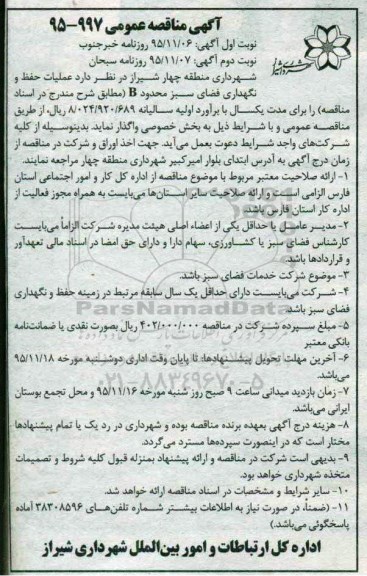 آگهی مناقصه عمومی ۹۹۷-۹۵
نوبت اول آگهی: ۹۵/۱۱/۰۶ روزنامه خبرجنوب
نوبت دوم آگهی: ۹۵/۱۱/۰۷ روزنامه سبحان
شهرداری منطقه چهار شیراز در نظر دارد عملیات حفظ و
نگهداری فضای سبز محدود B (مطابق شرح مندرج در اسناد
مناقصه) را برای مدت یکسال با برآورد اولیه سالیانه ۸/۰۲۴/۹۲۰/۶۸۹ ریال، از طریق
مناقصه عمومی و با شرایط ذیل به بخش خصوصی واگذار نماید. بدینوسیله از کلیه
شرکت‌های واجد شرایط دعوت بعمل می‌آید. جهت اخذ اوراق و شرکت در مناقصه از
زمان درج آگهی به آدرس ابتدای بلوار امیرکبیر شهرداری منطقه چهار مراجعه نمایند.
۱- ارائه صلاحیت معتبر مربوط با موضوع مناقصه از اداره کل کار و امور اجتماعی استان
فارس الزامی است و ارائه صلاحیت سایر استان‌ها می‌بایست به همراه مجوز فعالیت از
اداره کار استان فارس باشد.
۲- مدیر عامل یا حداقل یکی از اعضاء اصلی هیئت مدیره شرکت الزاماً می‌بایست
کارشناس فضای سبز یا کشاورزی، سهام دارا و دارای حق امضا در اسناد مالی تعهدآور
و قراردادها باشد.
۳- موضوع شرکت خدمات فضای سبز باشد.
۴- شرکت می‌بایست دارای حداقل یک سال سابقه مرتبط در زمینه حفظ و نگهداری
فضای سبز باشد.
۵- مبلغ سپرده شرکت در مناقصه ۴۰۲/۰۰۰/۰۰۰ ریال بصورت نقدی یا ضمانت‌نامه
بانکی معتبر
۶- آخرین مهلت تحویل پیشنهادها: تا پایان وقت اداری دوشنبه مورخه ۹۵/۱۱/۱۸
می‌باشد.
۷- زمان بازدید میدانی ساعت ۹ صبح روز شنبه مورخه ۹۵/۱۱/۱۶ و محل تجمع بوستان
ایرانی می‌باشد.
۸- هزینه درج آگهی بعهده برنده مناقصه بوده و شهرداری در رد یک یا تمام پیشنهادها
مختار است که در اینصورت سپرده‌ها مسترد می‌گردد.
۹- بدیهی است شرکت در مناقصه و ارائه پیشنهاد بمنزله قبول کلیه شروط و تصمیمات
متخذه شهرداری خواهد بود.
۱۰- سایر شرایط و مشخصات در اسناد مناقصه ارائه خواهد شد.
۱۱- (ضمناً، در صورت نیاز به اطلاعات بیشتر شماره تلفن‌های ۳۸۳۰۸۵۹۶ آماده
پاسخگوئی می‌باشد.)
اداره کل ارتباطات و امور بین‌الملل شهرداری شیراز
ParsNamadData
۰۲۱-۸۸۳۴۹۶۷۰-۵